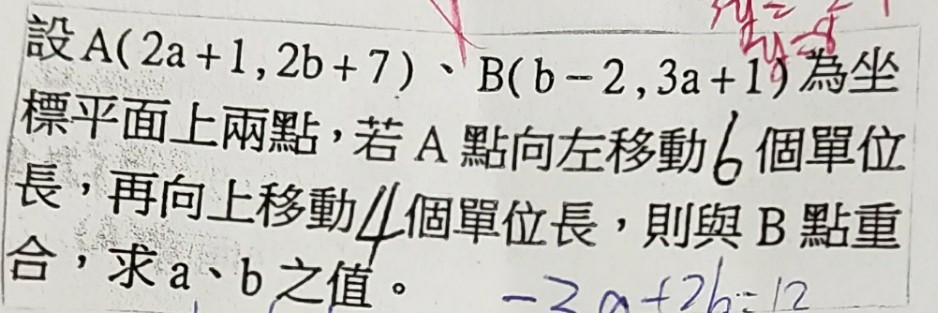 設A(2a+1,2b+7)、B(b-2,3a+1)為坐
標平面上兩點,若A點向左移動6個單位
長,再向上移動4個單位長,則與B點重
合,求a、b之值。
-3a+2b=12